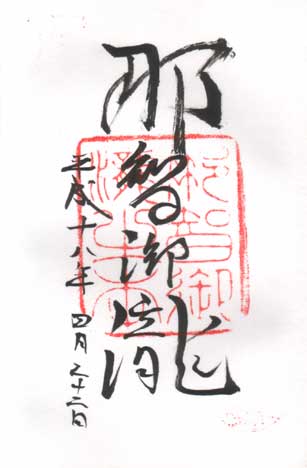 那智御瀧
平成十八年 四月二十二日